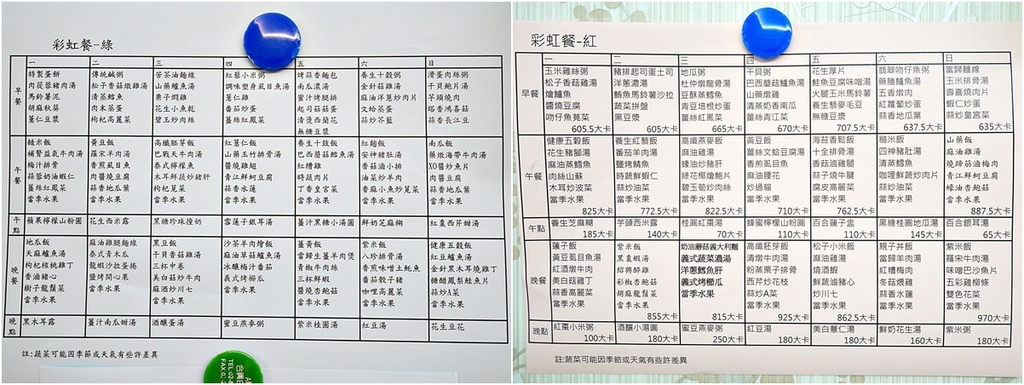 彩虹餐-綠
一 二 三 四 五 六 日
早餐
特製蛋餅
肉茷蓉豬肉湯
馬鈴薯泥
胡麻秋葵
薏仁豆漿
傳統鹹粥
松子香菇燉雞湯
清蒸鱈魚
肉末蒸蛋
枸杞高麗菜
苦茶油麵線
山藥鱸魚湯
栗子燜雞
花生小魚乾
碧玉炒肉絲
紅藜小米粥
調水塑身虱目魚湯
薏仁雞
番茄炒蛋
薑絲紅鳳菜
烤蒜香麵包
南瓜濃湯
蜜汁烤腿排
起司菇菇蛋
清燙西蘭花
無糖豆漿
養生十穀粥
金針菇雞湯
麻油洋蔥炒肉片
文蛤蒸蛋
蒜炒茶籃
滑蛋肉絲粥
干貝鮑片湯
芋頭燒肉
塔香鴻喜菇
蒜香長江豆
午餐
鮭米飯
補腎益氣牛肉湯
梅汁排骨
蒜蓉奶油蝦仁
薑絲紅鳳菜
當季水果
黃豆飯
羅宋牛肉湯
香煎虱目魚
肉醬燒豆腐
蒜香地瓜葉
當季水果
高纖胚芽飯
巴戰天牛肉湯
泰式檸檬魚
木耳鮮蔬炒豬肝
枸杞莧菜
當季水果
紅薏仁飯
山藥玉竹排骨湯
醬燒雞腿
青江鮮蚵豆腐
蒜香水蓮
當季水果
養生十穀飯
巴西蘑菇鱸魚湯
紅煙雞
時蔬肉片
丁香皇宮菜
當季水果
紅麴飯
安神豬肚湯
香菇滷小腿
油菜炒羊肉
香麻小魚炒莧菜
當季水果
南瓜飯
藥燉海帶牛肉湯
XO醬炒魚片
肉醬豆腐
蒜炒地瓜葉
當季水果
午點
蘋果檸檬山粉圓
花生西米露
黑糖珍珠撞奶
雪蓮子銀耳湯
薑汁黑糖小湯圓
鮮奶芝麻糊
紅棗西芹甜湯
晚餐
地瓜飯
天麻鱸魚湯
枸杞核桃雞丁
香滷豬心
樹子龍鬚菜
當季水果
麻油雞腿麵線
泰式青木瓜
龍蝦沙拉蛋捲
鹽烤開心果
當季水果
黑豆飯
干貝香菇雞湯
三杯中卷
美白菇炒牛肉
麻酒炒川七
當季水果
沙茶羊肉燴飯
麻油草菇鱸魚湯
冰釀梅汁番茄
義式烤櫛瓜
當季水果
薑黃飯
當歸生薑羊肉煲
青椒牛肉絲
三杯鮮蝦
醬燒杏鮑菇
當季水果
紫米飯
八珍排骨湯
香煎味噌土魠魚
番茄骰子豬
咖哩高麗菜
當季水果
健康五穀飯
紅豆鱸魚湯
金針黑木耳燒雞丁
糖醋鳳梨鮭魚片
蒜炒A菜
當季水果
晚點
黑木耳露
薑汁南瓜甜湯
酒釀蛋湯
蜜豆燕麥粥
紫米桂圓湯
紅豆湯
花生豆花
註:蔬菜可能因季節或天氣有些許差異
彩虹餐-紅
一 二 三 四 五 六 日
早餐
玉米雞絲粥
松子香菇雞湯
燴鱸魚
醬燒豆腐
吻仔魚莧菜
605.5大卡
豬排起司蛋土司
洋蔥濃湯
鮪魚馬鈴薯沙拉
蔬菜拼盤
黑豆漿
605大卡
地瓜粥
杜仲燉龍骨湯
豆酥蒸鱈魚
青豆培根炒蛋
薑絲紅鳳菜
665大卡
干貝粥
巴西蘑菇鱸魚湯
山藥燉雞
清蒸奶香南瓜
薑絲川七
670大卡
花生厚片
鮭魚豆腐味噌湯
火腿玉米馬鈴薯
養生藜麥毛豆
無糖豆漿
707.5大卡
翡翠吻仔魚粥
麻油雞湯
五香燉肉
紅蘿蔔炒蛋
蒜香地瓜葉
637.5大卡
當歸麵線
玉米排骨湯
壽喜燒肉片
蝦仁炒蛋
蒜炒皇宮菜
635大卡
午餐
健康五穀飯
十全牛肉湯
麻油蒸鱈魚
肉絲山蘇
木耳炒波菜
當季水果
825大卡
養生紅藜飯
番茄羊肉湯
鹽烤鯖魚
時蔬鮮蝦仁
蒜炒油菜
當季水果
772.5大卡
高纖燕麥飯
黑豆燉雞湯
綠花椰燴鮑片
蠔油炒豬肝
碧玉筍炒肉絲
當季水果
822.5大卡
黃豆飯
薑絲文蛤豆腐湯
香煎虱目魚
麻油腰花
炒過貓
當季水果
710大卡
海苔香鬆飯
十全排骨湯
香菇滷雞腿
蒜子燒牛腱
腐皮高麗菜
當季水果
762.5大卡
糙米飯
四神豬肚湯
清蒸鱈魚
咖哩鮮蔬炒肉片
蒜炒油菜
當季水果
山藥飯
麻油雞湯
燒蹄筋滷梅肉
青江鮮蚵豆腐
蠔油杏鮑菇
當季水果
887.5大卡
午點
養生芝麻糊
185大卡
芋頭西米露
140大卡
桂圓紅棗湯
70大卡
蜂蜜檸檬山粉圓
110大卡
百合蓮子盅
110大卡
黑糖桂圓地瓜湯
145大卡
百合銀耳湯
65大卡
晚餐
蓮子飯
黃豆虱目魚湯
紅酒燉牛肉
美白菇雞丁
蒜香高麗菜
當季水果
紫米飯
黑棗蝦湯
紹興醉雞
彩椒杏鮑菇
胡麻龍鬚菜
當季水果
855大卡
奶油蘑菇義大利麵
義式蔬菜濃湯
洋蔥鱈魚肝
義式烤櫛瓜
當季水果
815大卡
高纖胚芽飯
清燉羊肉湯
粉蒸栗子排骨
西芹炒花枝
蒜炒A菜
當季水果
925大卡
松子小米飯
麻油雞湯
燒酒蝦
鮮蔬滷豬心
炒川七
當季水果
862.5大卡
親子丼飯
當歸羊肉湯
紅糟梅肉
冬菇煨雞
蒜香水蓮
當季水果
紫米飯
羅宋牛肉湯
味噌巴沙魚片
五彩雞柳條
雙色花菜
當季水果
970大卡
晚點
紅棗小米粥
100大卡
酒釀小湯圓
180大卡
蜜豆燕麥粥
250大卡
紅豆湯
180大卡
美白薏仁湯
180大卡
鮮奶花生湯
160大卡
紫米粥
180大卡
註:蔬菜可能因季節或天氣有些許差異